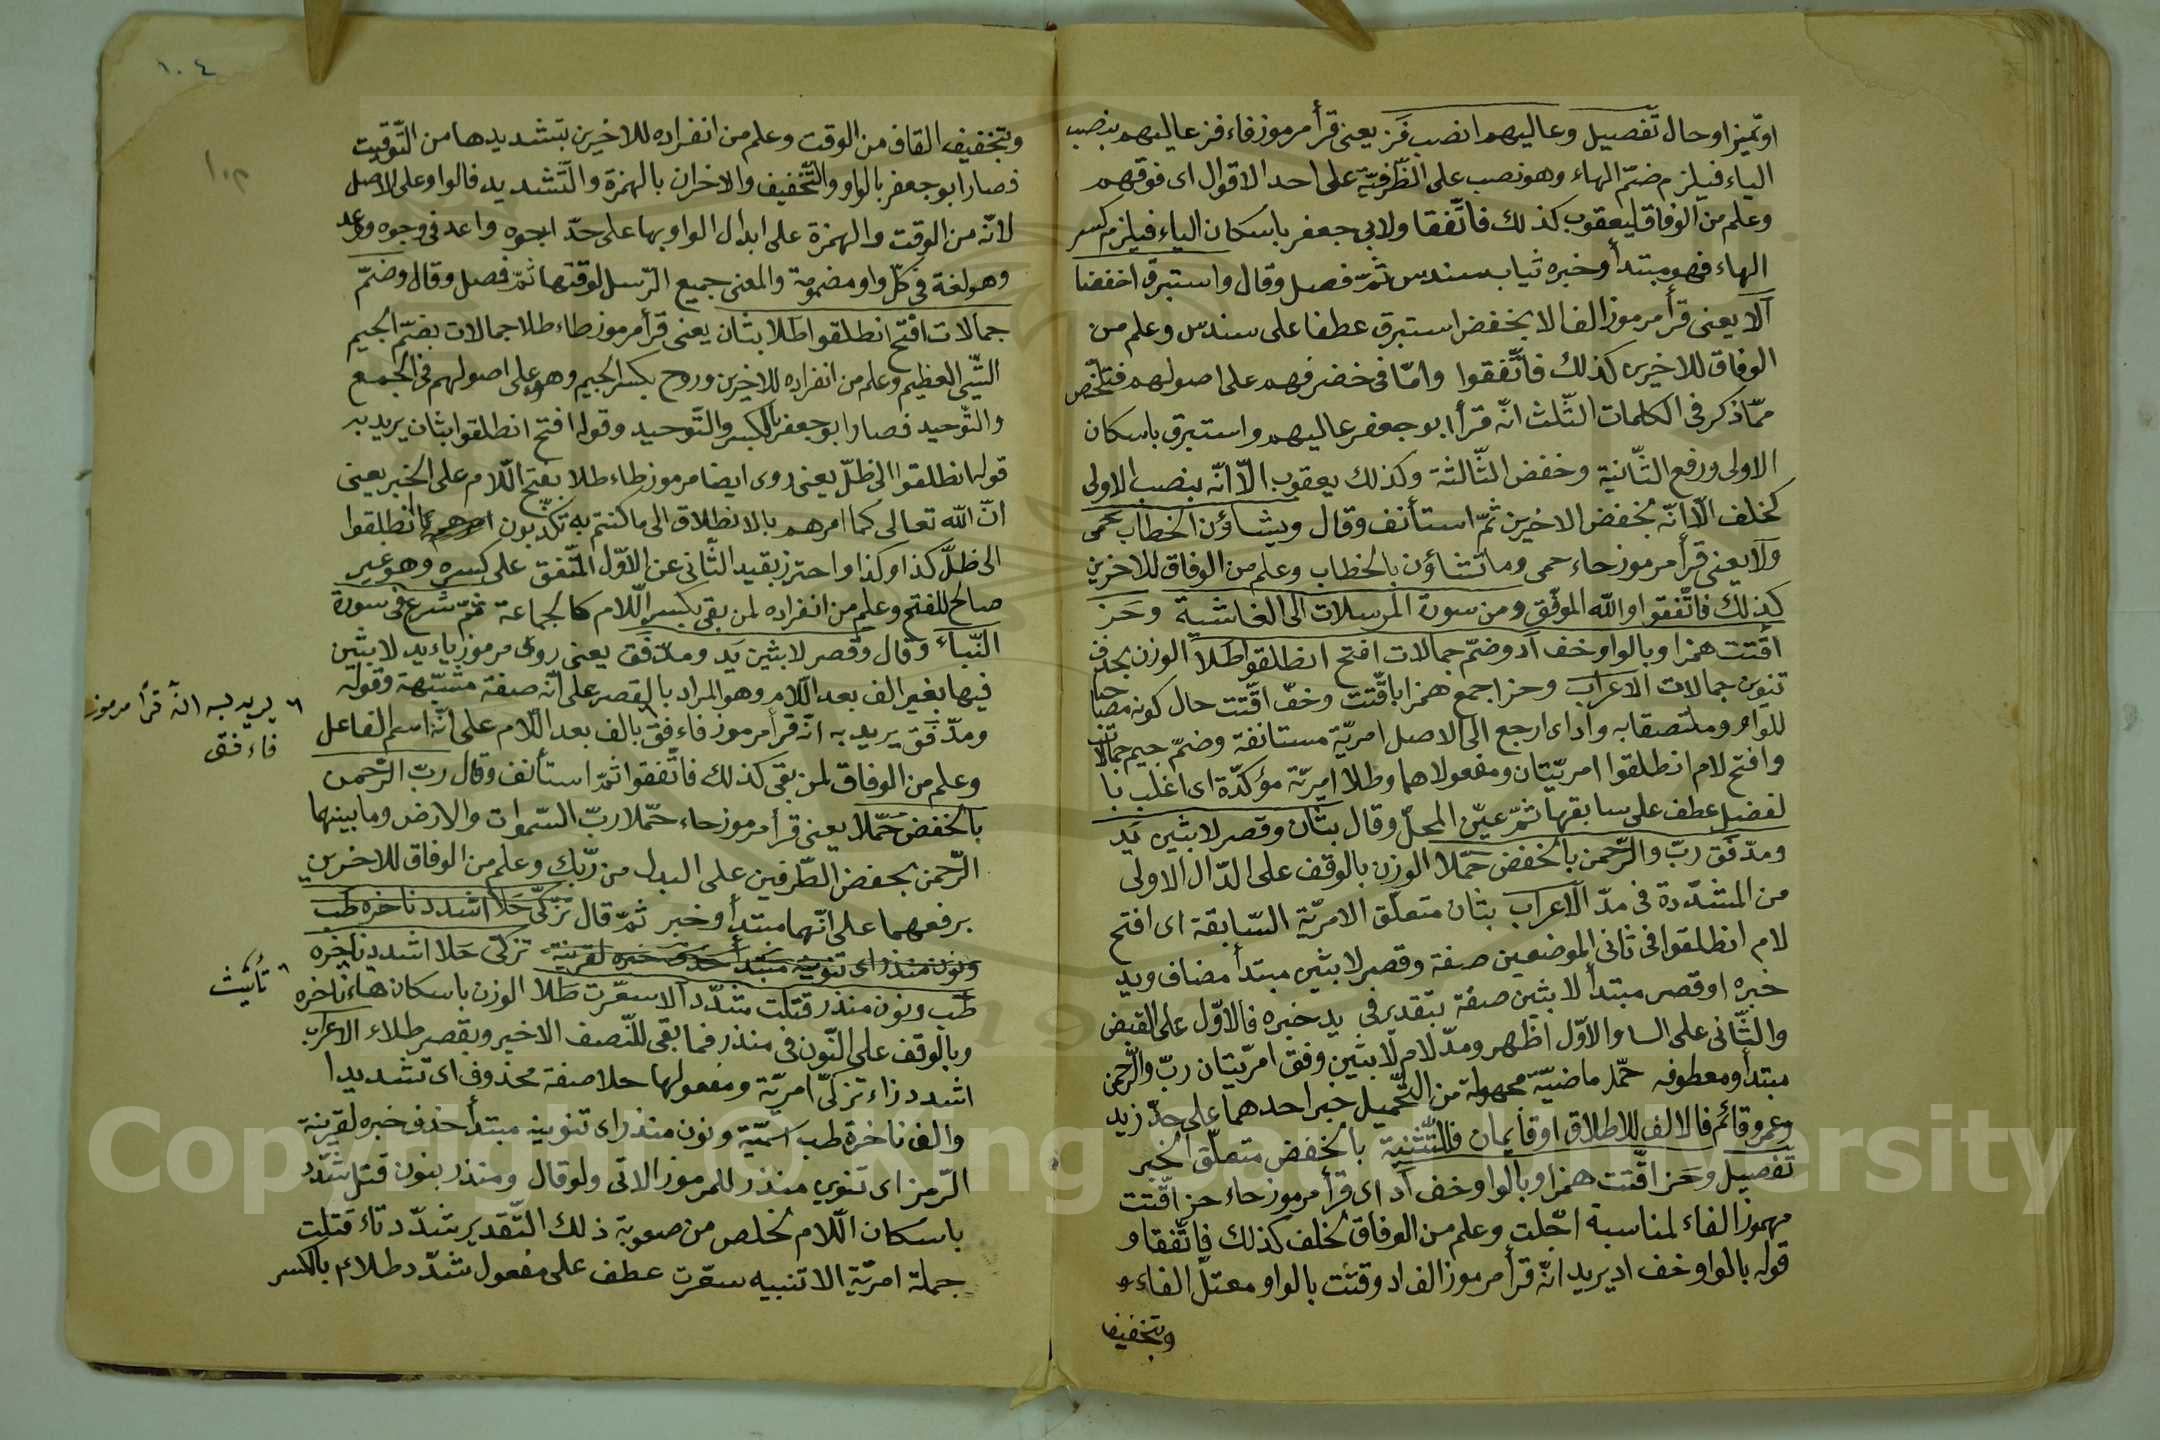 او تميز او حال تفصيل وعاليهم انصب فز يعنى قرأ مرموز فاء فز عاليهم بنصب
الياء فيلزم ضمّ الهاء وهو نصب على الظّرفيّة على احد الاقوال اى فوقهم
وعلم من الوفاق ليعقوب كذلك فاتّفقا ولابى جعفر باسكان الياء فيلزم كسر
الهاء فهو مبتدأ وخبره ثياب سندس ثمّ فصل وقال واستبرق اخفضا
الا يعنى قرأ مرموز الف الا بخفض استبرق عطفا على سندس وعلم من
الوفاق للاخرين كذلك فاتّفقوا وامّا فى خضر فهم على اصولهم فتلخّص
ممّا ذكر فى الكلمات الثّلث انّه قرأ ابو جعفر عاليهم واستبرق باسكان
الاولى ورفع الثّانية وخفض الثّالثة وكذلك يعقوب الّا انّه بنصب الاولى
كخلف الّا انّه بخفض الاخرين ثمّ استأنف وقال ويشاؤن الخطاب حمى
ولا يعنى قرأ مرموز حاء حمى وما تشاؤن بالخطاب وعلم من الوفاق للاخرين
كذلك فاتّفقوا والله الموفّق ومن سورة المرسلات الى الغاشية وحز
اقّتت همزا وبالواو خف اد وضمّ جمالات افتح انطلقوا طلا الوزن بحذف
تنوين جمالات الاعراب وحز اجمع همزا باقّتت وخفّ اقّتت حال كونه مصاحبا
للواو وملتصقا به واد اى ارجع الى الاصل امريّة مستانفة وضمّ جيم جمالات
وافتح لام انطلقوا امريّتان ومفعولاهما وطلا امريّة مؤكدّة اى اغلب با
لفضل عطف على سابقها ثمّ عيّن المحلّ وقال بثان وقصر لابثين يد
ومدّ فق ربّ والرّحمن بالخفض حمّلا الوزن بالوقف على الدّال الاولى
من المشدّدة فى مدّ الاعراب بثان متعلّق الامريّة السّابقة اى افتح
لام انطلقوا فى ثانى الموضعين صفة وقصر لابثين مبتدأ مضاف ويد
خبره او قصر مبتدأ لابثين صفة بتقدير فى يد خبره فالاوّل على القبض
والثّانى على السا والاوّل اظهر ومدّ لام لابثين وفق امريّتان ربّ والرّحمن
مبتدأ ومعطوفه حمّلا ماضيّة مجهولة من التّحميل خبر احدهما على حدّ زيد
وعمرو قائم فالالف للاطلاق او قايمان فللتّثنية بالخفض متعلّق الخبر
تفصيل وحز اقّتت همزا وبالواو خف اد اى قرأ مرموز حاء حز اقّتت
مهموز الفاء لمناسبة اجّلت وعلم من الوفاق لخلف كذلك فاتّفقا و
قوله بالواو خف اد يريد انّه قرأ مرموز الف اد وقتت بالواو معتلّ الفاء
وبتخفيف
وبتخفيف القاف من الوقت وعلم من انفراده للاخرين بتشديدها من التّوقيت
فصار ابو جعفر بالواو والتّخفيف والاخران بالهمزة والتّشديد فالواو على الاصل
لانّه من الوقت والهمزة على ابدال الواو بها على حدّ اجوه واعد فى وجوه ووعد
وهو لغة فى كلّ واو مضمومة والمعنى جميع الرّسل لوقتها ثمّ فصل وقال وضمّ
جمالات افتح انطلقوا طلا بثان يعنى قرأ مرموز طاء طلا جمالات بضمّ الجيم
الشّئ العظيم وعلم من انفراده للاخرين وروح بكسر الجيم وهو على اصولهم فى الجمع
والتّوحيد فصار ابو جعفر بالكسر والتّوحيد وقوله افتح انطلقوا بثان يريد به
قوله انطلقوا الى ظلّ يعنى روى ايضا مرموز طاء طلا بفتح اللّام على الخبر يعنى
انّ الله تعالى كما امرهم بالانطلاق الى ما كنتم به تكذّبون انطلقوا
الى ظلّ كذا وكذا واحترز بقيد الثّانى عن الاوّل المتّفق على كسره وهو غير
صالح للفتح وعلم من انفراده لمن بقى بكسر اللّام كالجماعة ثمّ شرع فى سورة
النّباء وقال وقصر لابثين يد ومدّ فق يعنى روى مرموز ياء يد لابثين
فيها بغير الف بعد اللّام وهو المراد بالقصر على انّه صفة مشبّهة وقوله
ومدّ فق يريد به انّه قرأ مرموز فاء فق بالف بعد اللّام على انّه اسم الفاعل
وعلم من الوفاق لمن بقى كذلك فاتّفقوا ثمّ استأنف وقال ربّ الرّحمن
بالخفض حمّلا يعنى قرأ مرموز حاء حمّلا ربّ السّموات والارض وما بينهما
الرّحمن بخفض الطّرفين على البدل من ربّك وعلم من الوفاق للاخرين
برفعهما على انّهما مبتدأ وخبر ثمّ قال تزّكّى حلا اشدد ناخره طب
ونون منذر اى تنوينه مبتدأ حذف خبره لقرينة تزكّى حلا اشدد ناخره
طب ونون منذر قتلت شدّد الا سعّرت طلا الوزن باسكان هاء ناخره
وبالوقف على النّون فى منذر فما بقى للنّصف الاخير وبقصر طلاء الاعراب
اشدد زاء تزكّى امريّة ومفعولها حلا صفة محذوف اى تشديدا
والف ناخرة طب اسميّة ونون منذر اى تنوينه مبتدأ حذف خبره لقرينة
الرّمز اى تنوين منذر للمرموز الاتى ولو قال ومنذر بنون قتل شدّد
باسكان اللّام لخلص من صعوبة ذلك التّقدير شدّد تاء قتلت
جملة امريّة الا تنبيه سعّرت عطف على مفعول شدّد طلاء بالكسر
يريد به انّه قرأ مرموز
فاء فق
تأنيث
١٠٤
Copyright © King Saud University